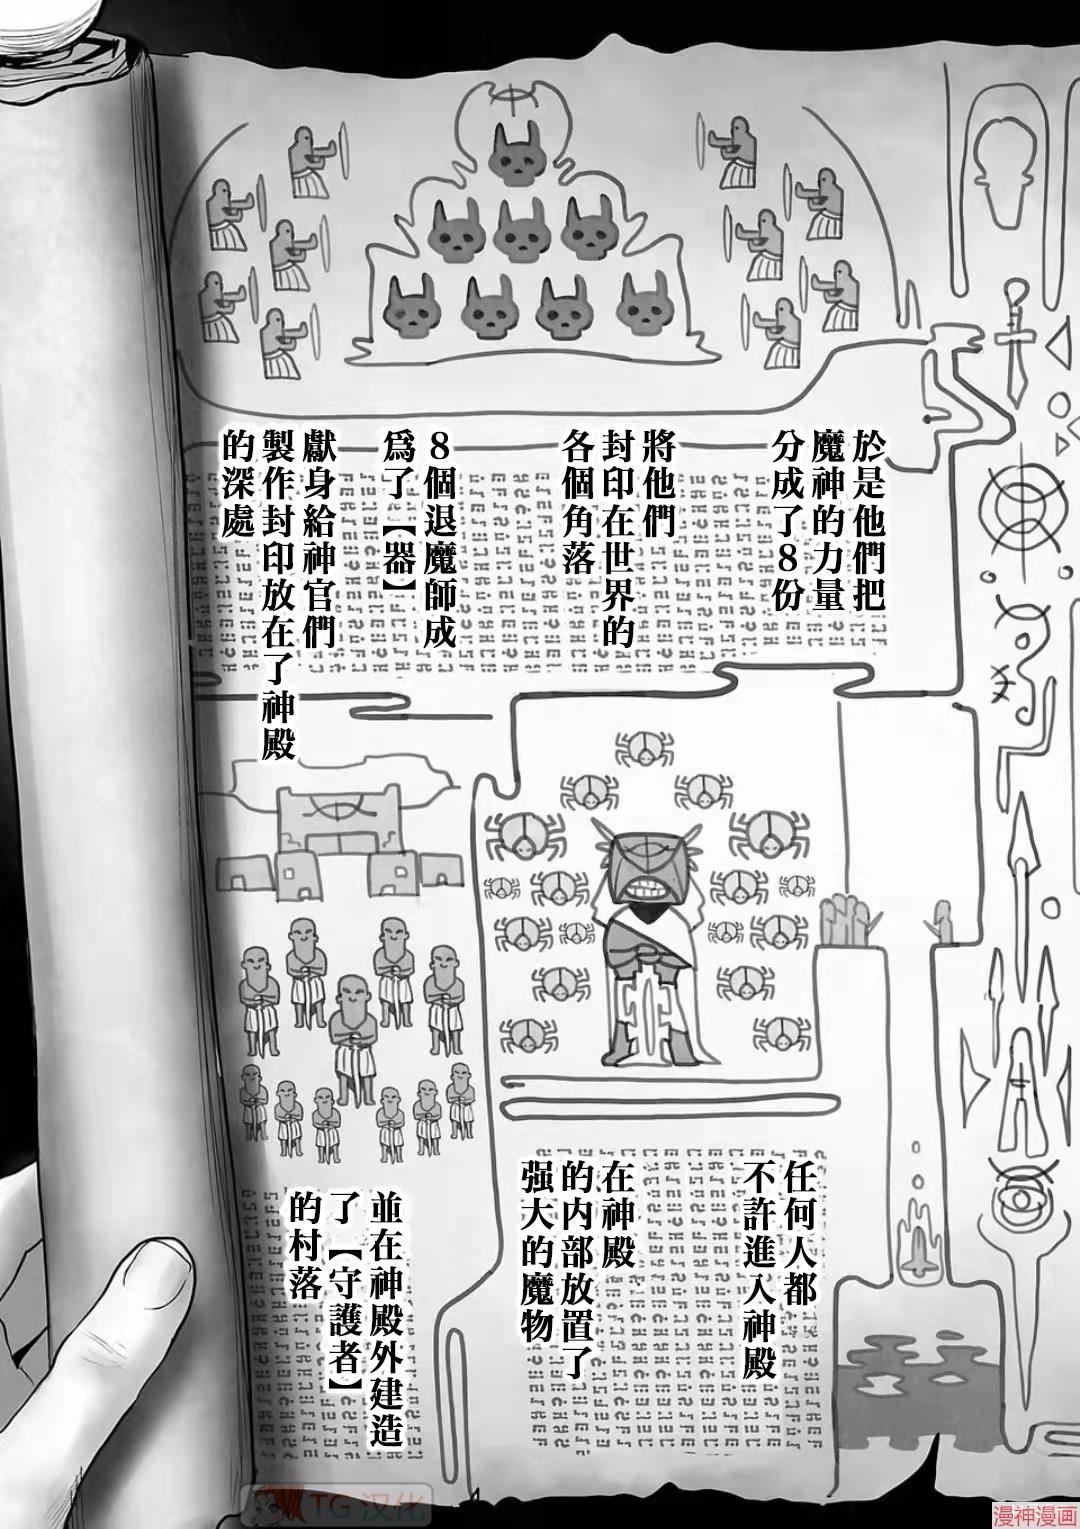 於是他們把
魔神的力量
分成了8份
將他們
封印在世界的
各個角落
8個退魔師成
爲了【器】
獻身給神官們
製作封印放在了神殿
的深處
任何人都
不許進入神殿
在神殿
的内部放置了
强大的魔物
並在神殿外建造
了【守護者】
的村落
TG 汉化
漫神漫画